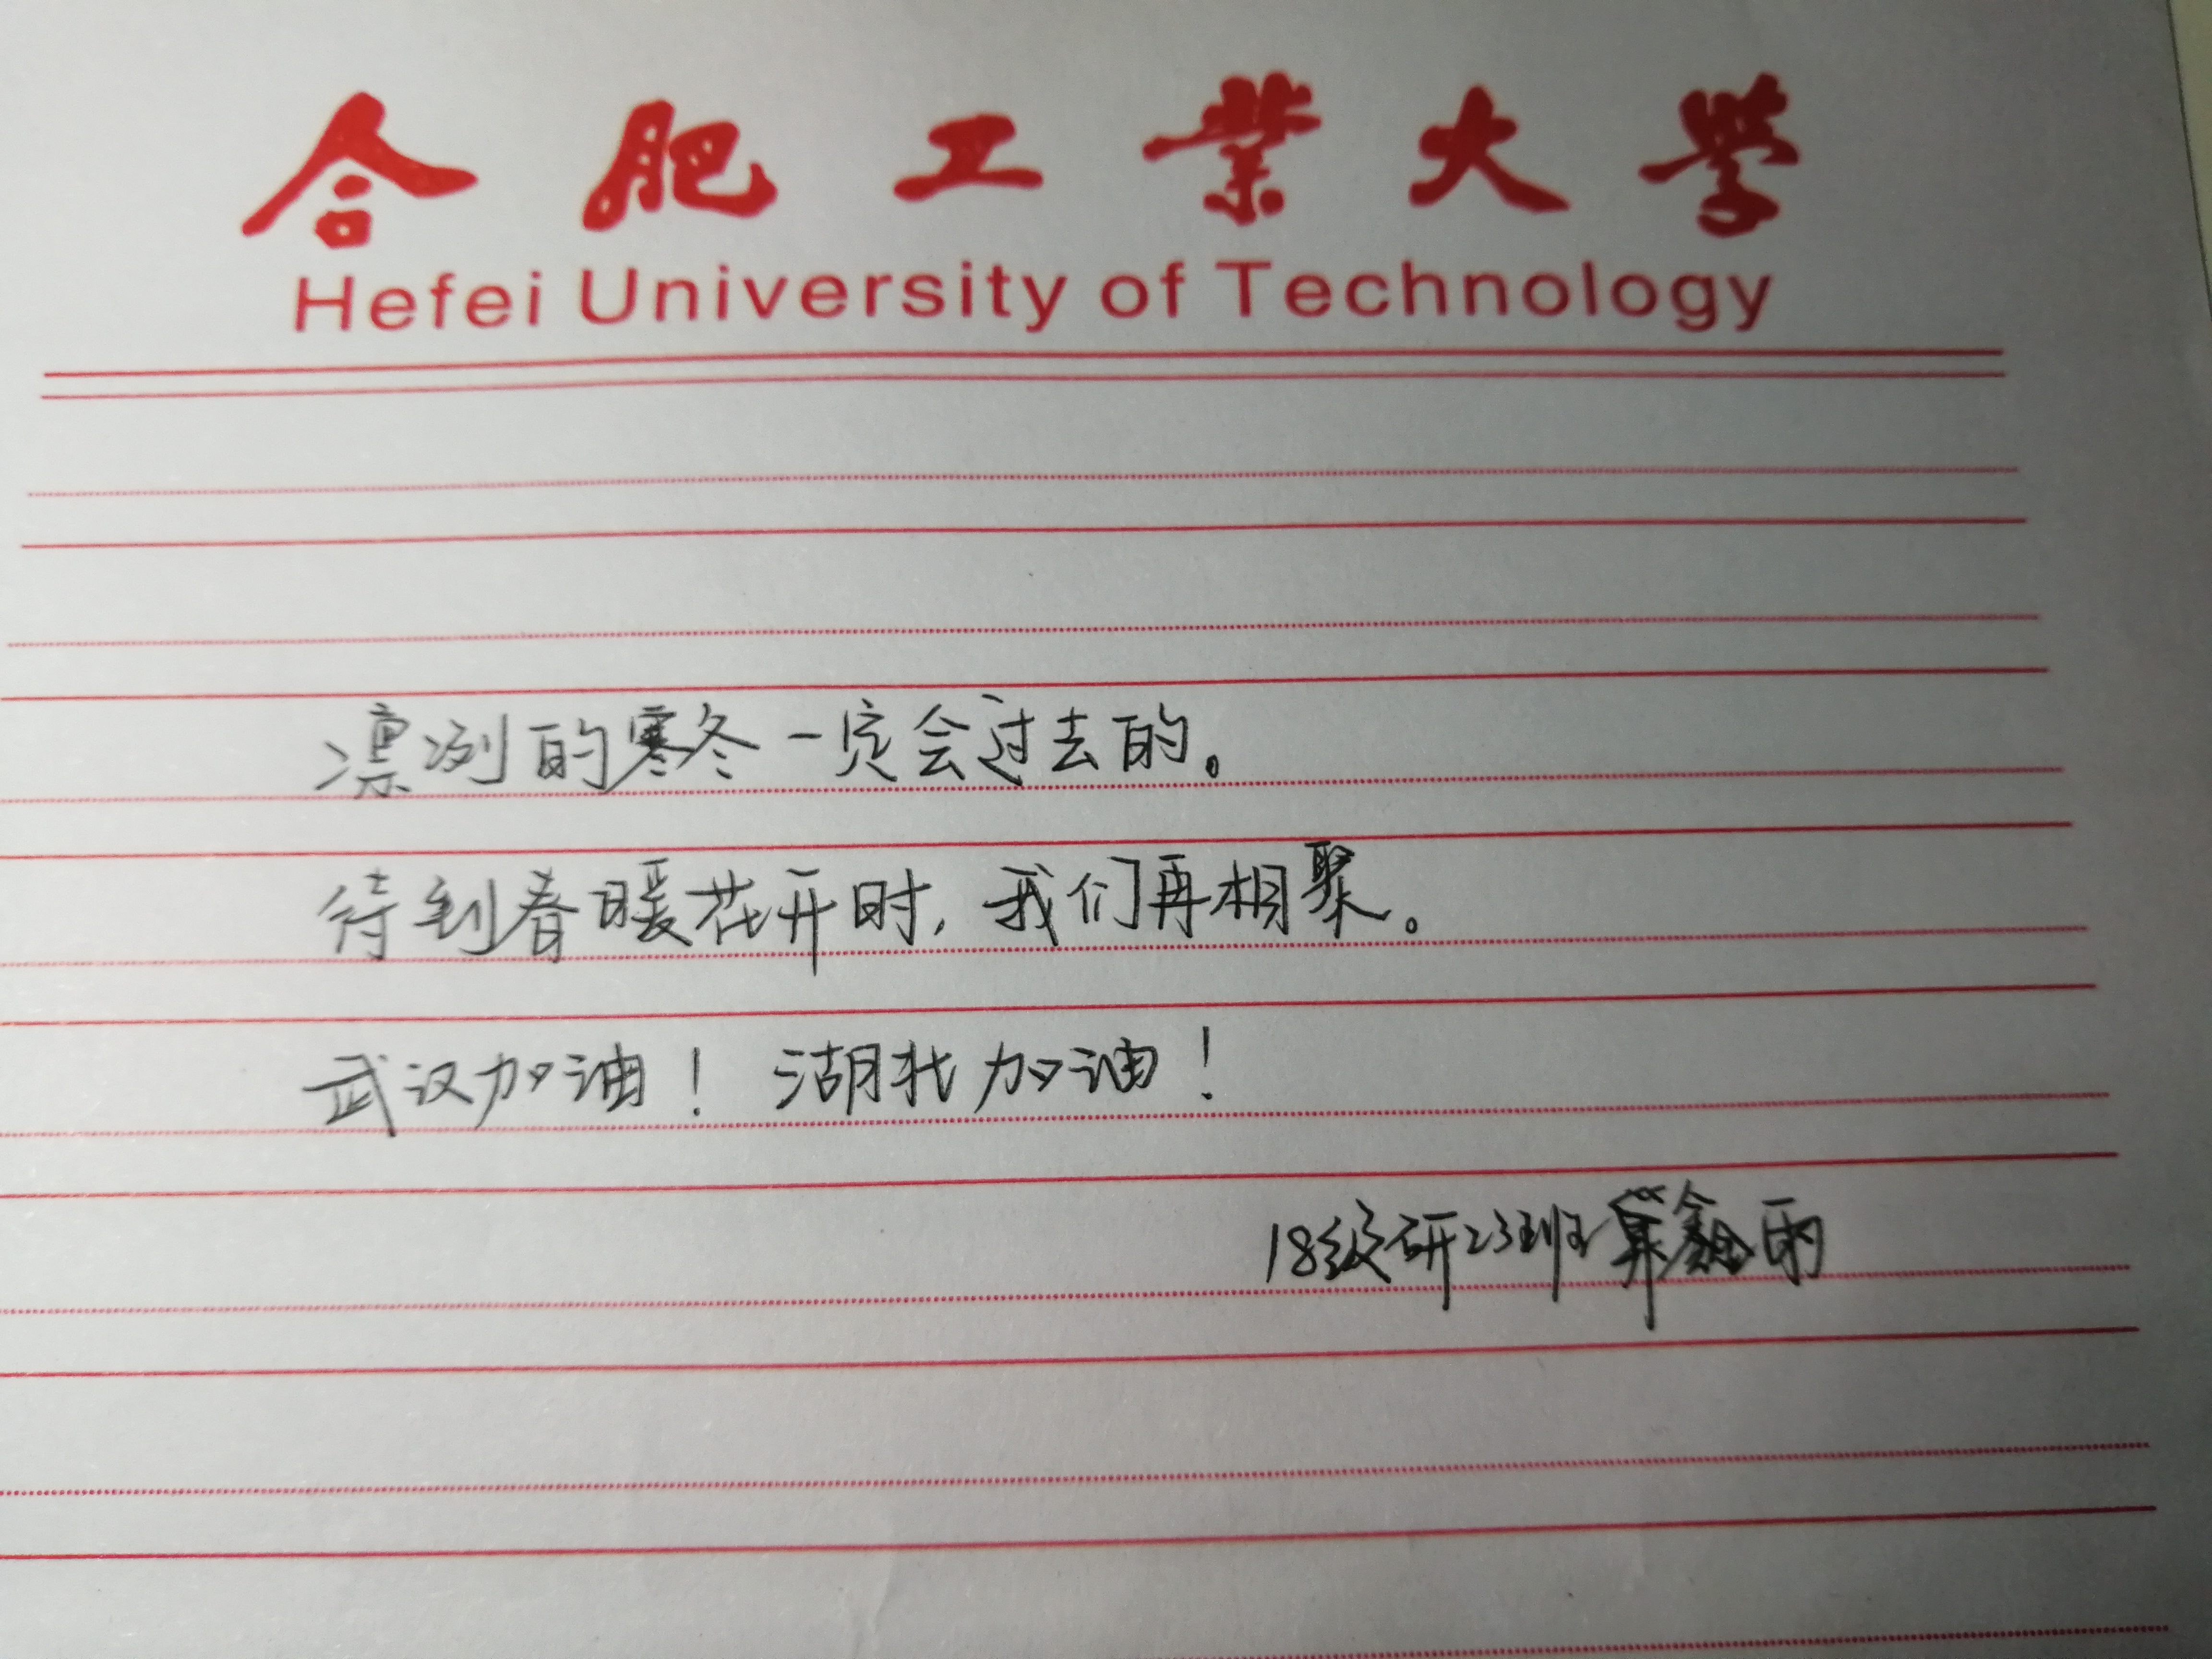 合肥工业大学
Hefei University of Technology
凛冽的寒冬一定会过去的。
待到春暖花开时，我们再相聚。
武汉加油！湖北加油！
18级研23班 鑫雨